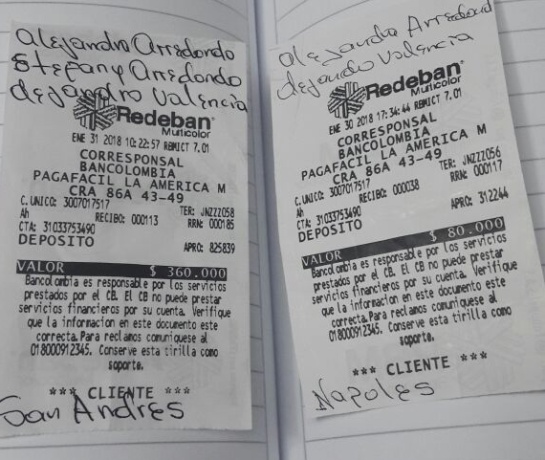 alejandro Arredondo
Stefany Arredondo
alejandro Valencia
Redeban
Multicolor
ENE 31 2018 10:22:57 RBMICT 7.01
CORRESPONSAL
BANCOLOMBIA
PAGAFACIL LA AMERICA M
CRA 86A 43-49
C.UNICO: 3007017517 TER: JNZZZ058
Ah RECIBO: 000113 RRN: 000185
CTA: 31033753490
DEPOSITO APRO: 825839
VALOR $ 360.000
Bancolombia es responsable por los servicios
prestados por el CB. El CB no puede prestar
servicios financieros por su cuenta. Verifique
que la informacion en este documento este
correcta. Para reclamos comuniquese al
018000912345. Conserve esta tirilla como
soporte.
*** CLIENTE ***
San Andres
alejandro Arredond
alejandro Valencia
Redeban
Multicolor
ENE 30 2018 17:34:44 RBMICT 7.01
CORRESPONSAL
BANCOLOMBIA
PAGAFACIL LA AMERICA M
CRA 86A 43-49
C.UNICO: 3007017517 TER: JNZZZ056
Ah RECIBO: 000038 RRN: 000117
CTA: 31033753490
DEPOSITO APRO: 312244
VALOR $ 80.000
Bancolombia es responsable por los servicios
prestados por el CB. El CB no puede prestar
servicios financieros por su cuenta. Verifique
que la informacion en este documento este
correcta. Para reclamos comuniquese al
018000912345. Conserve esta tirilla como
soporte.
*** CLIENTE ***
Napoles